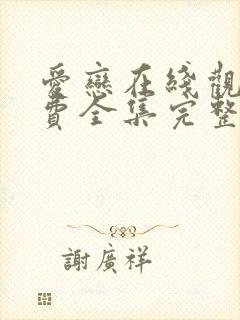 愛戀在綫觀
費全集完整
謝廣祥